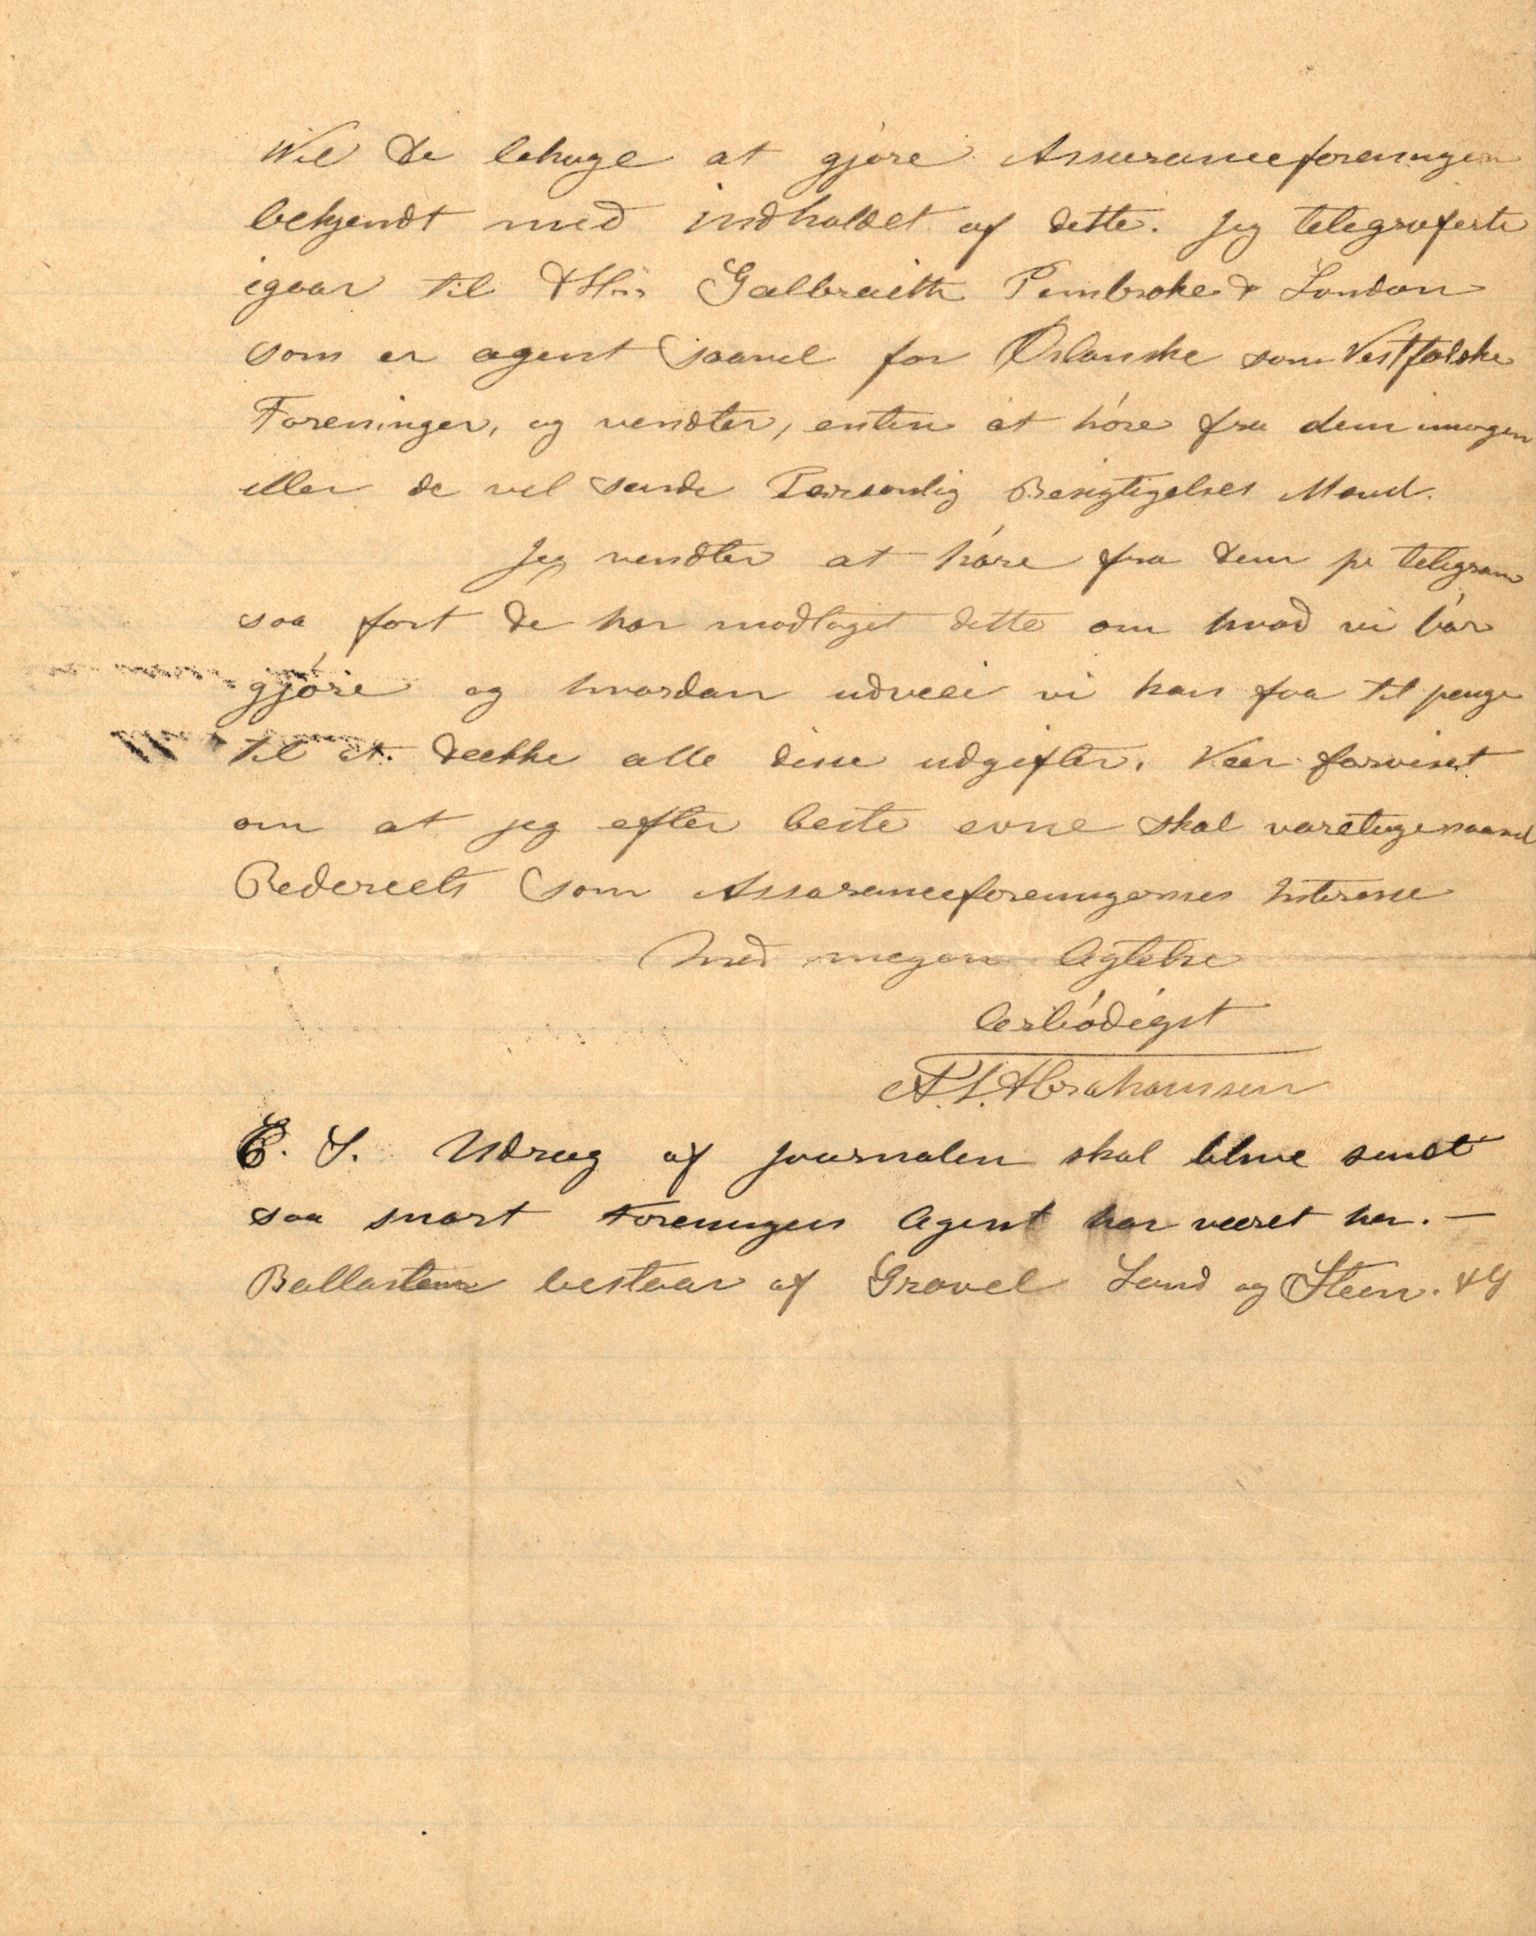 Wil De behage at gjøre Assuranceforeningen
bekjendt med indholdet af dette. Jeg telegraferte
igaar til Galbraith Pembroke & London
som er agent saavel for Oslanske som Vestfoldske
Foreninger, og vendter, enten at høre fra dem imorgen
eller de vil sende Personlig Besigtigelses Mand.
Jeg vendter at høre fra Dem pr telegram
saa fort De har modtaget dette om hvad vi bør
gjøre og hvordan udveie vi kan faa til penge
til at dække alle disse udgifter. Vær forvisset
om at jeg efter beste evne skal varetage saavel
Rederiets som Assuranceforeningernes Interesse
Med megen Agtelse
Ærbødigst
A. L. Abrahamsen
P. S. Udrag af journalen skal blive sendt
saa snart Foreningens Agent har været her. —
Ballasten bestaar af Gravel Sand og Steen.